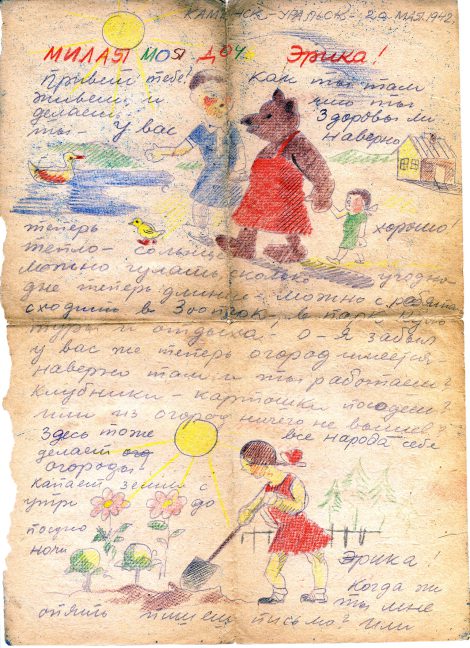 КАМЕНСК-УРАЛЬСК- 29 МАЯ 1942
МИЛАЯ МОЯ ДОЧЬ Эрика!
Привет тебе! Как ты там
живешь и что ты
делаешь Здоровы ли
ты- У вас наверно
теперь хорошо!
тепло- солнце
можно гулять сколько угодно
дне теперь длинные- можно с ребята
сходить в Зоопарк- в парк куль
туры и отдыха- О-Я забыл
у вас же теперь огород имеется-
наверно там и ты работаешь?
клубники- картошки поедем?
или из огород ничего не вышев?
Здесь тоже все народа себе
делают ого
огороды!
капаем землю с
утри до
поздно
ночи
Эрика!
Когда же
опять пишешь ты мне
письмо? Или